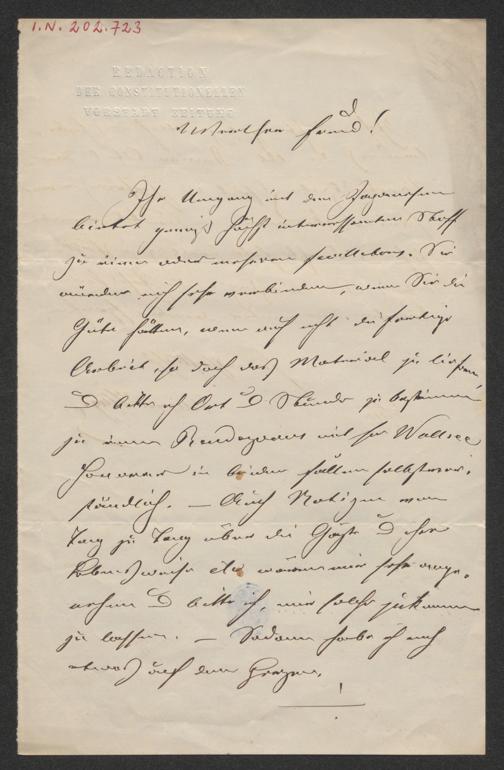 I.N. 202.723
REDACTION
DER CONSTITUTIONELLEN
VORSTADT ZEITUNG
Werther Freund!
Ihr Umgang mit den Japanesen
bietet gewiß höchst interessanten Stoff
zu einem oder mehreren Feuilletons. Sie
würden mich sehr verbinden, wenn Sie die
Güte hätten, wenn auch nicht die fertige
Arbeit, so doch das Material zu liefern,
u bitte ich Ort u Stunde zu bestimmen
zu einem Rendezvous mit Wallsee
Honorar in beiden Fällen selbstver-
ständlich. — Auch Notizen von
Tag zu Tag über die Gäste u ihre
Lebensweise etc wären mir sehr ange-
nehm u bitte ich, mir solche zukommen
zu lassen. — Sodann habe ich noch
etwas auf dem Herzen,
!